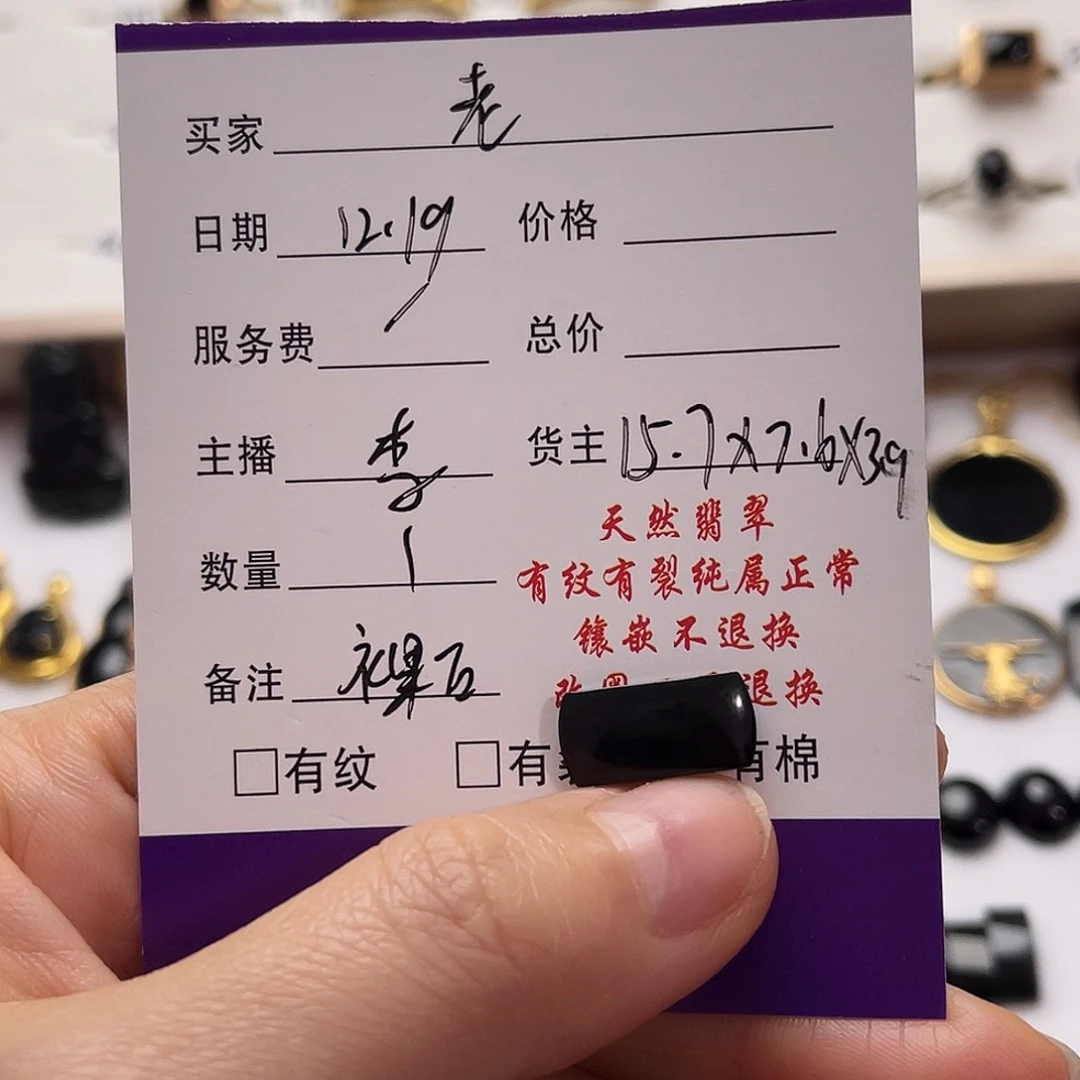 买家 老
日期 12.19 价格
服务费 总价
主播 李 货主 15.7X7.6X3.9
天然翡翠
数量 1 有纹有裂纯属正常
镶嵌不退换
备注 裸石 退换
□有纹 □有 有棉